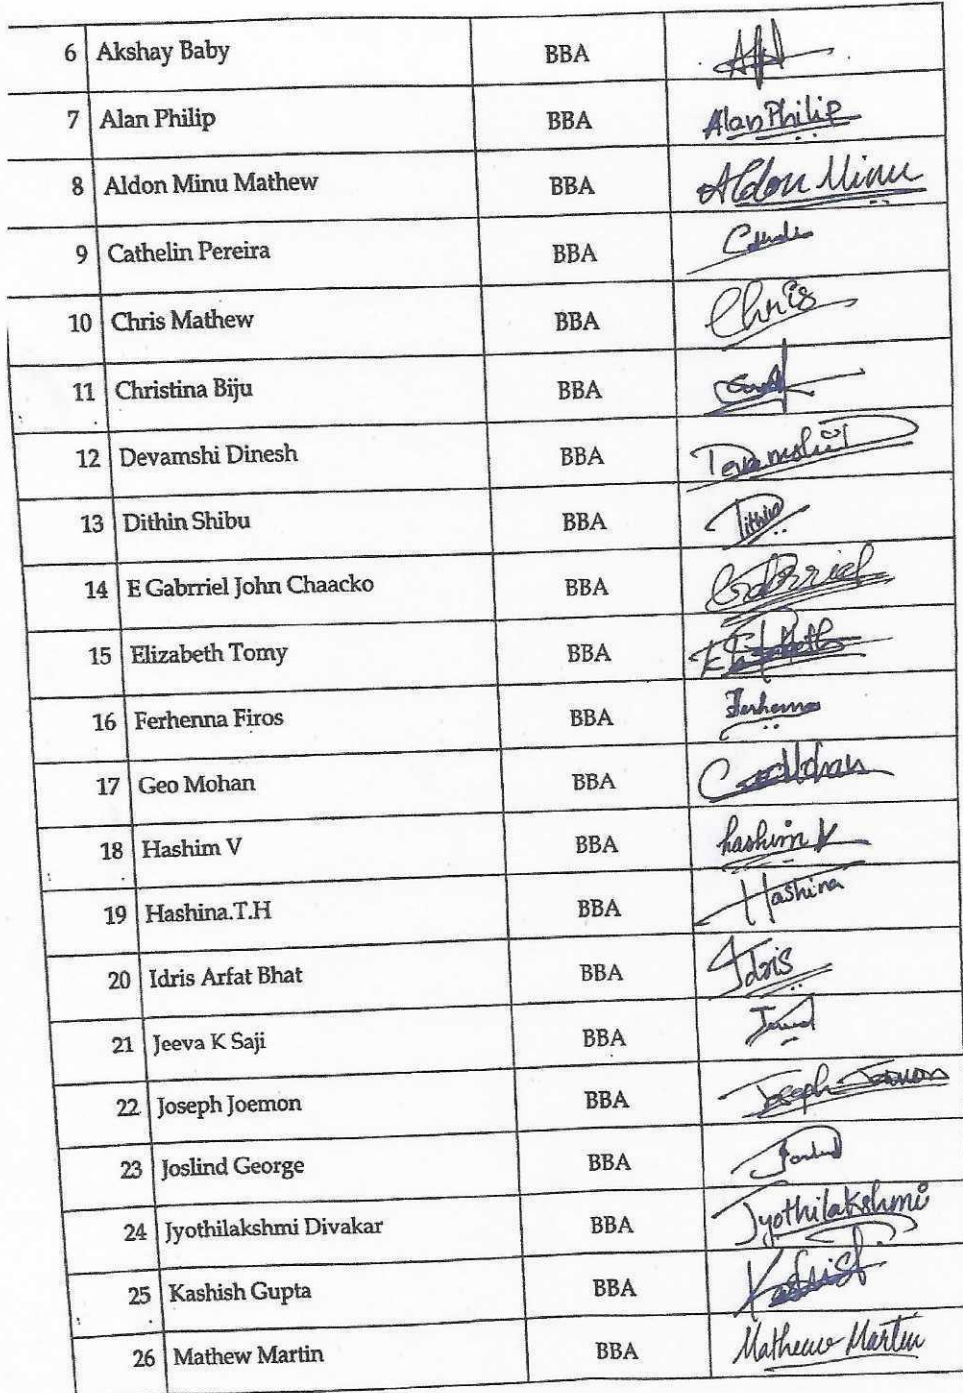 6 Akshay Baby BBA
7 Alan Philip BBA Alan Philip
8 Aldon Minu Mathew BBA Aldon Minu
9 Cathelin Pereira BBA
10 Chris Mathew BBA Chris
11 Christina Biju BBA
12 Devamshi Dinesh BBA Devamshi
13 Dithin Shibu BBA Dithin
14 E Gabrriel John Chaacko BBA Gabrriel
15 Elizabeth Tomy BBA Elizabeth
16 Ferhenna Firos BBA
17 Geo Mohan BBA
18 Hashim V BBA hashim V
19 Hashina.T.H BBA Hashina
20 Idris Arfat Bhat BBA Idris
21 Jeeva K Saji BBA
22 Joseph Joemon BBA Joseph Joemon
23 Joslind George BBA
24 Jyothilakshmi Divakar BBA Jyothilakshmi
25 Kashish Gupta BBA Kashish
26 Mathew Martin BBA Mathew Martin